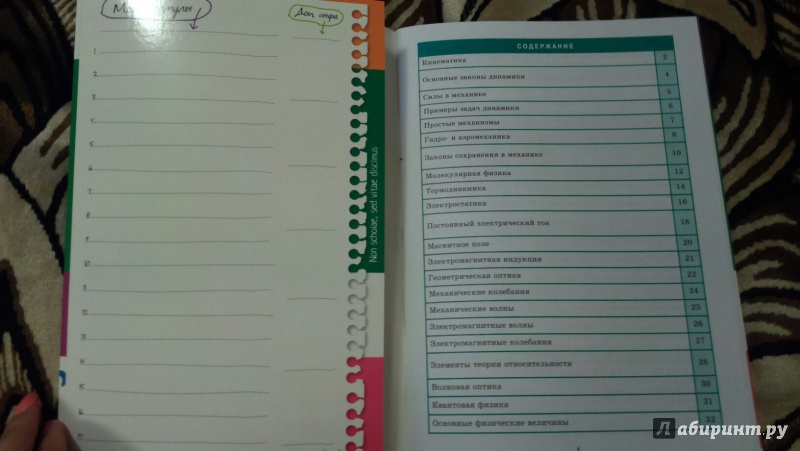 Доп. инфа
1
2
3
4
5
6
7
8
9
10
11
12
13
14
15
16
17
Non scholae, sed vitae discimus
СОДЕРЖАНИЕ
Кинематика 2
Основные законы динамики 4
Силы в механике 5
Примеры задач динамики 6
Простые механизмы 7
Гидро- и аэромеханика 9
Законы сохранения в механике 10
Молекулярная физика 12
Термодинамика 14
Электростатика 16
Постоянный электрический ток 18
Магнитное поле 20
Электромагнитная индукция 21
Геометрическая оптика 22
Механические колебания 24
Механические волны 25
Электромагнитные волны 26
Электромагнитные колебания 27
Элементы теории относительности 28
Волновая оптика 30
Квантовая физика 31
Основные физические величины 32
Лабиринт.ру